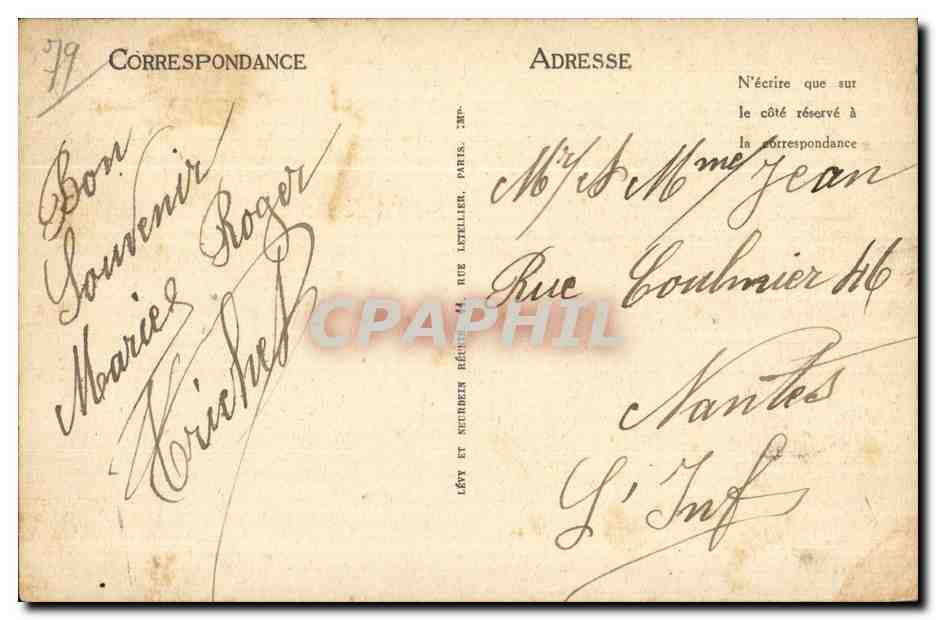 79
CORRESPONDANCE
Bon
Souvenir
Marie Roger
Trichet
LÉVY ET NEURDEIN RÉUNIS 44 RUE LETELLIER, PARIS. IMP.
CPAPHIL
ADRESSE
N'écrire que sur
le côté réservé à
la correspondance
Mr/& Mme/Jean
Rue Coulmier 46
Nantes
L'Inf